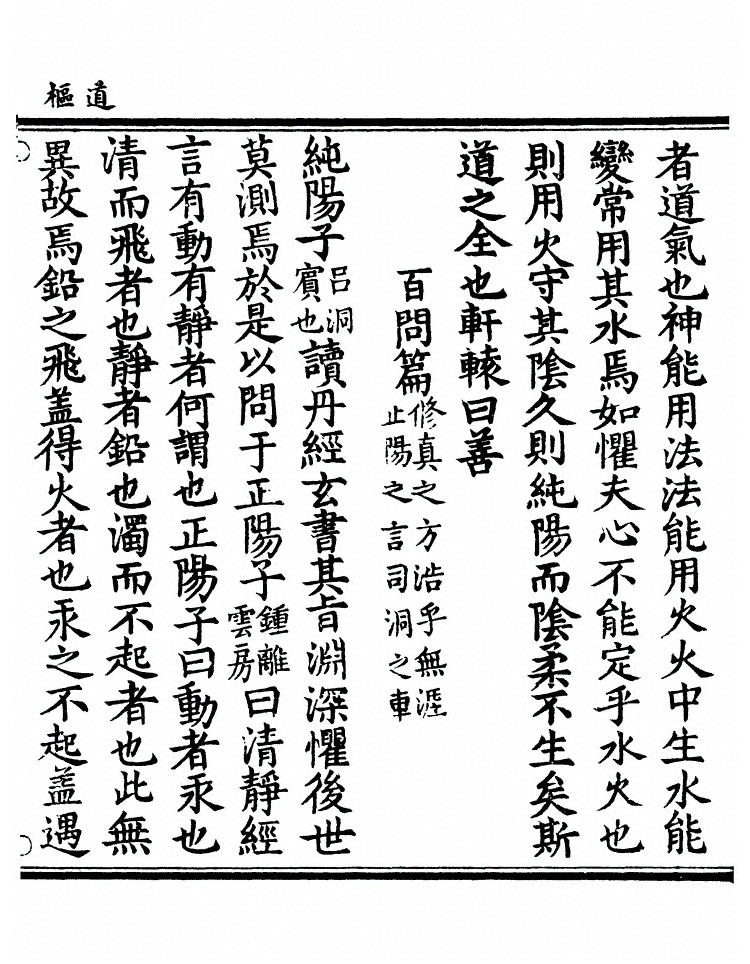 道樞
者道氣也神能用法法能用火火中生水能
變常用其水焉如懼夫心不能定乎水火也
則用火守其陰久則純陽而陰柔不生矣斯
道之全也軒轅曰善
百問篇修真之方浩乎無涯正陽之言司洞之車
純陽子呂洞賓也讀丹經玄書其旨淵深懼後世
莫測焉於是以問于正陽子鍾離雲房曰清靜經
言有動有靜者何謂也正陽子曰動者汞也
清而飛者也靜者鉛也濁而不起者也此無
異故焉鉛之飛蓋得火者也汞之不起蓋遇